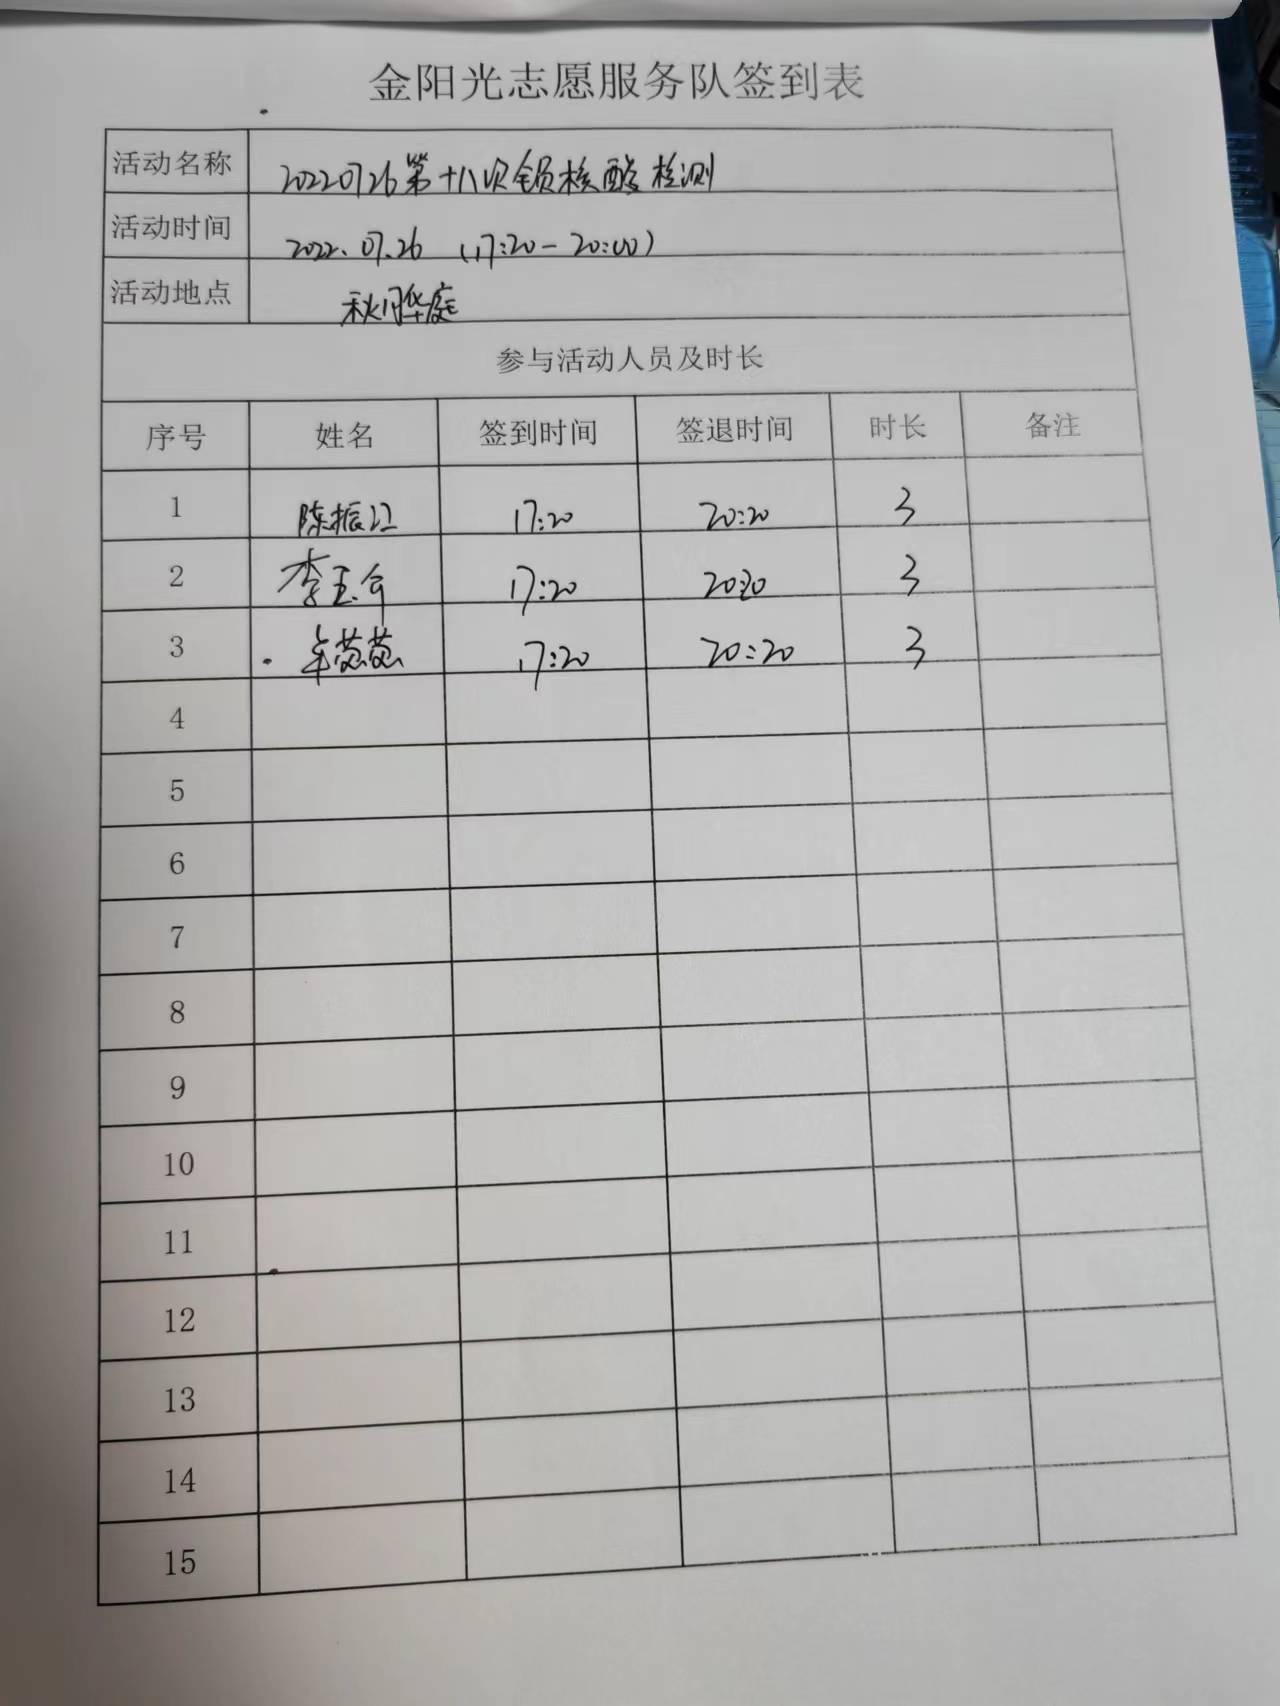 金阳光志愿服务队签到表
活动名称 20220726第十八次全员核酸检测
活动时间 2022.07.26 (17:20-20:00)
活动地点 秋月华庭
参与活动人员及时长
序号 姓名 签到时间 签退时间 时长 备注
1 陈振江 17:20 20:20 3
2 李玉 17:20 20:20 3
3 17:20 20:20 3
4
5
6
7
8
9
10
11
12
13
14
15